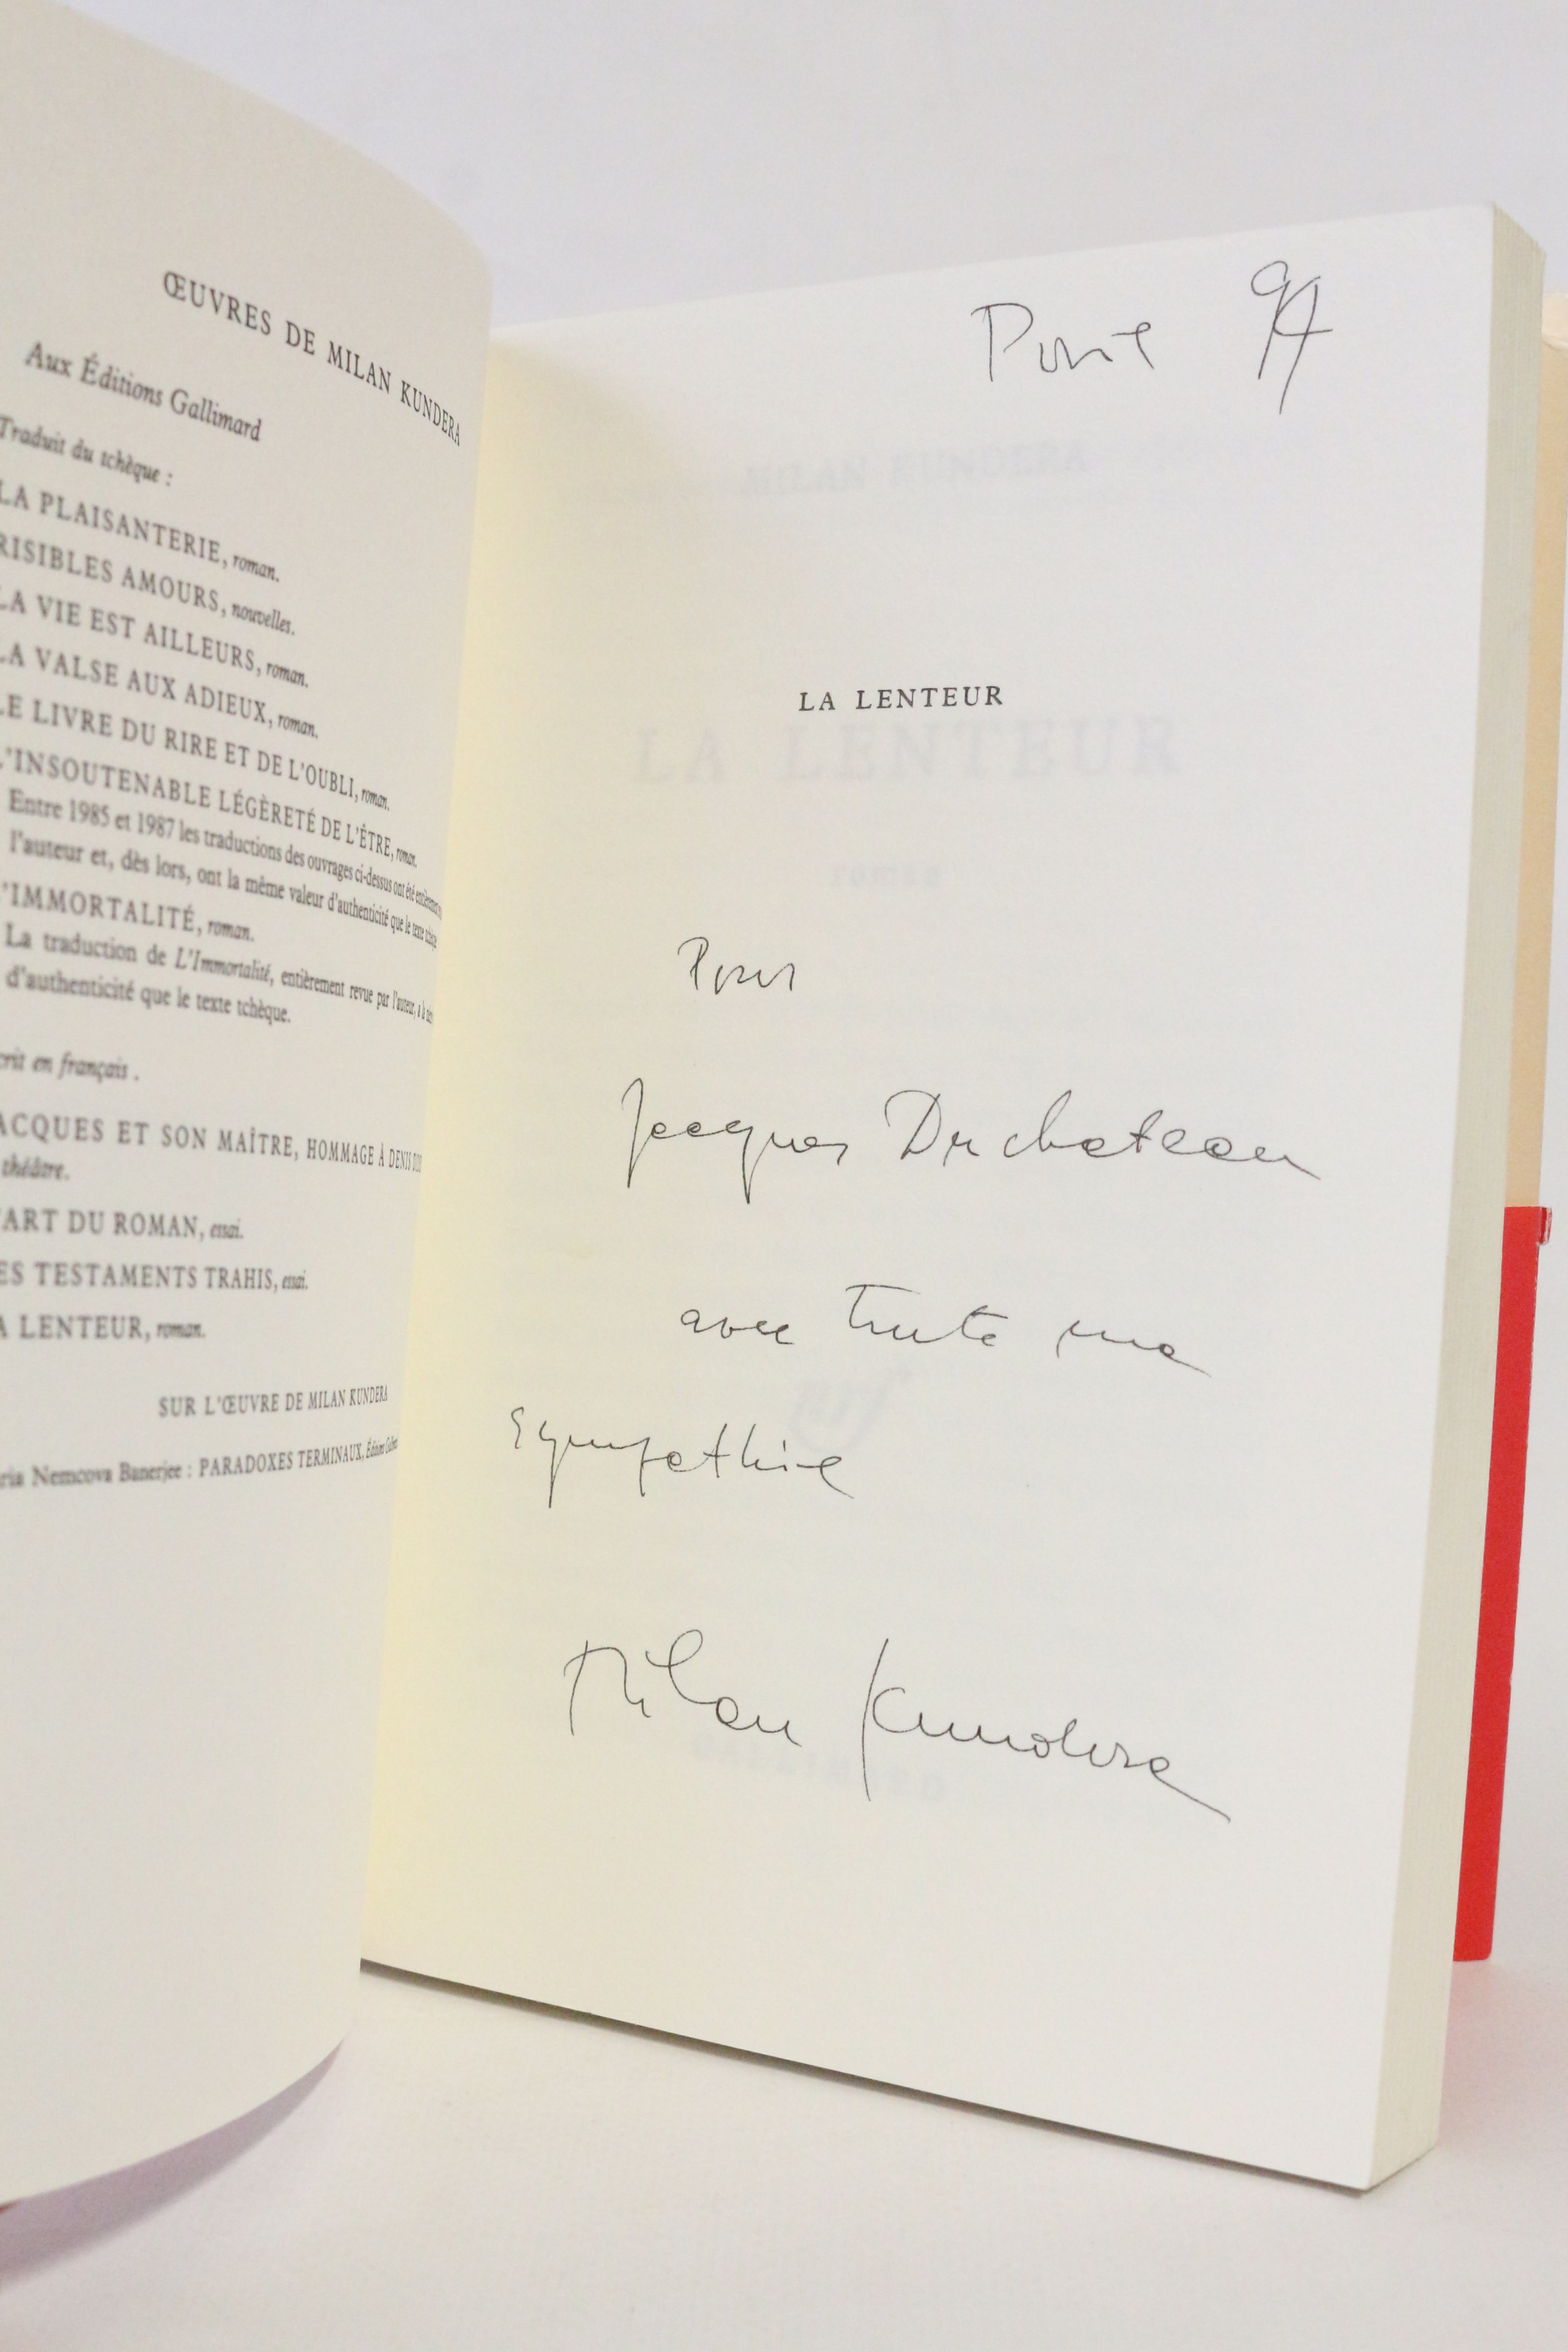 ŒUVRES DE MILAN KUNDERA
Aux Éditions Gallimard
Traduit du tchèque :
LA PLAISANTERIE, roman.
RISIBLES AMOURS, nouvelles.
LA VIE EST AILLEURS, roman.
LA VALSE AUX ADIEUX, roman.
LE LIVRE DU RIRE ET DE L'OUBLI, roman.
L'INSOUTENABLE LÉGÈRETÉ DE L'ÊTRE, roman.
Entre 1985 et 1987 les traductions des ouvrages ci-dessus ont été
l'auteur et, dès lors, ont la même valeur d'authenticité que le texte
'IMMORTALITÉ, roman.
La traduction de L'Immortalité, entièrement revue par l'auteur, a la
d'authenticité que le texte tchèque.
crit en français .
ACQUES ET SON MAÎTRE, HOMMAGE À DENIS
théâtre.
'ART DU ROMAN, essai.
ES TESTAMENTS TRAHIS, essai.
A LENTEUR, roman.
SUR L'ŒUVRE DE MILAN KUNDERA
ria Nemcova Banerjee : PARADOXES TERMINAUX,
97
MILAN KUNDERA
LA LENTEUR
LA LENTEUR
roman
Pour
Jacques Duchateau
avec toute ma
sympathie
nrf
Milan Kundera
GALLIMARD